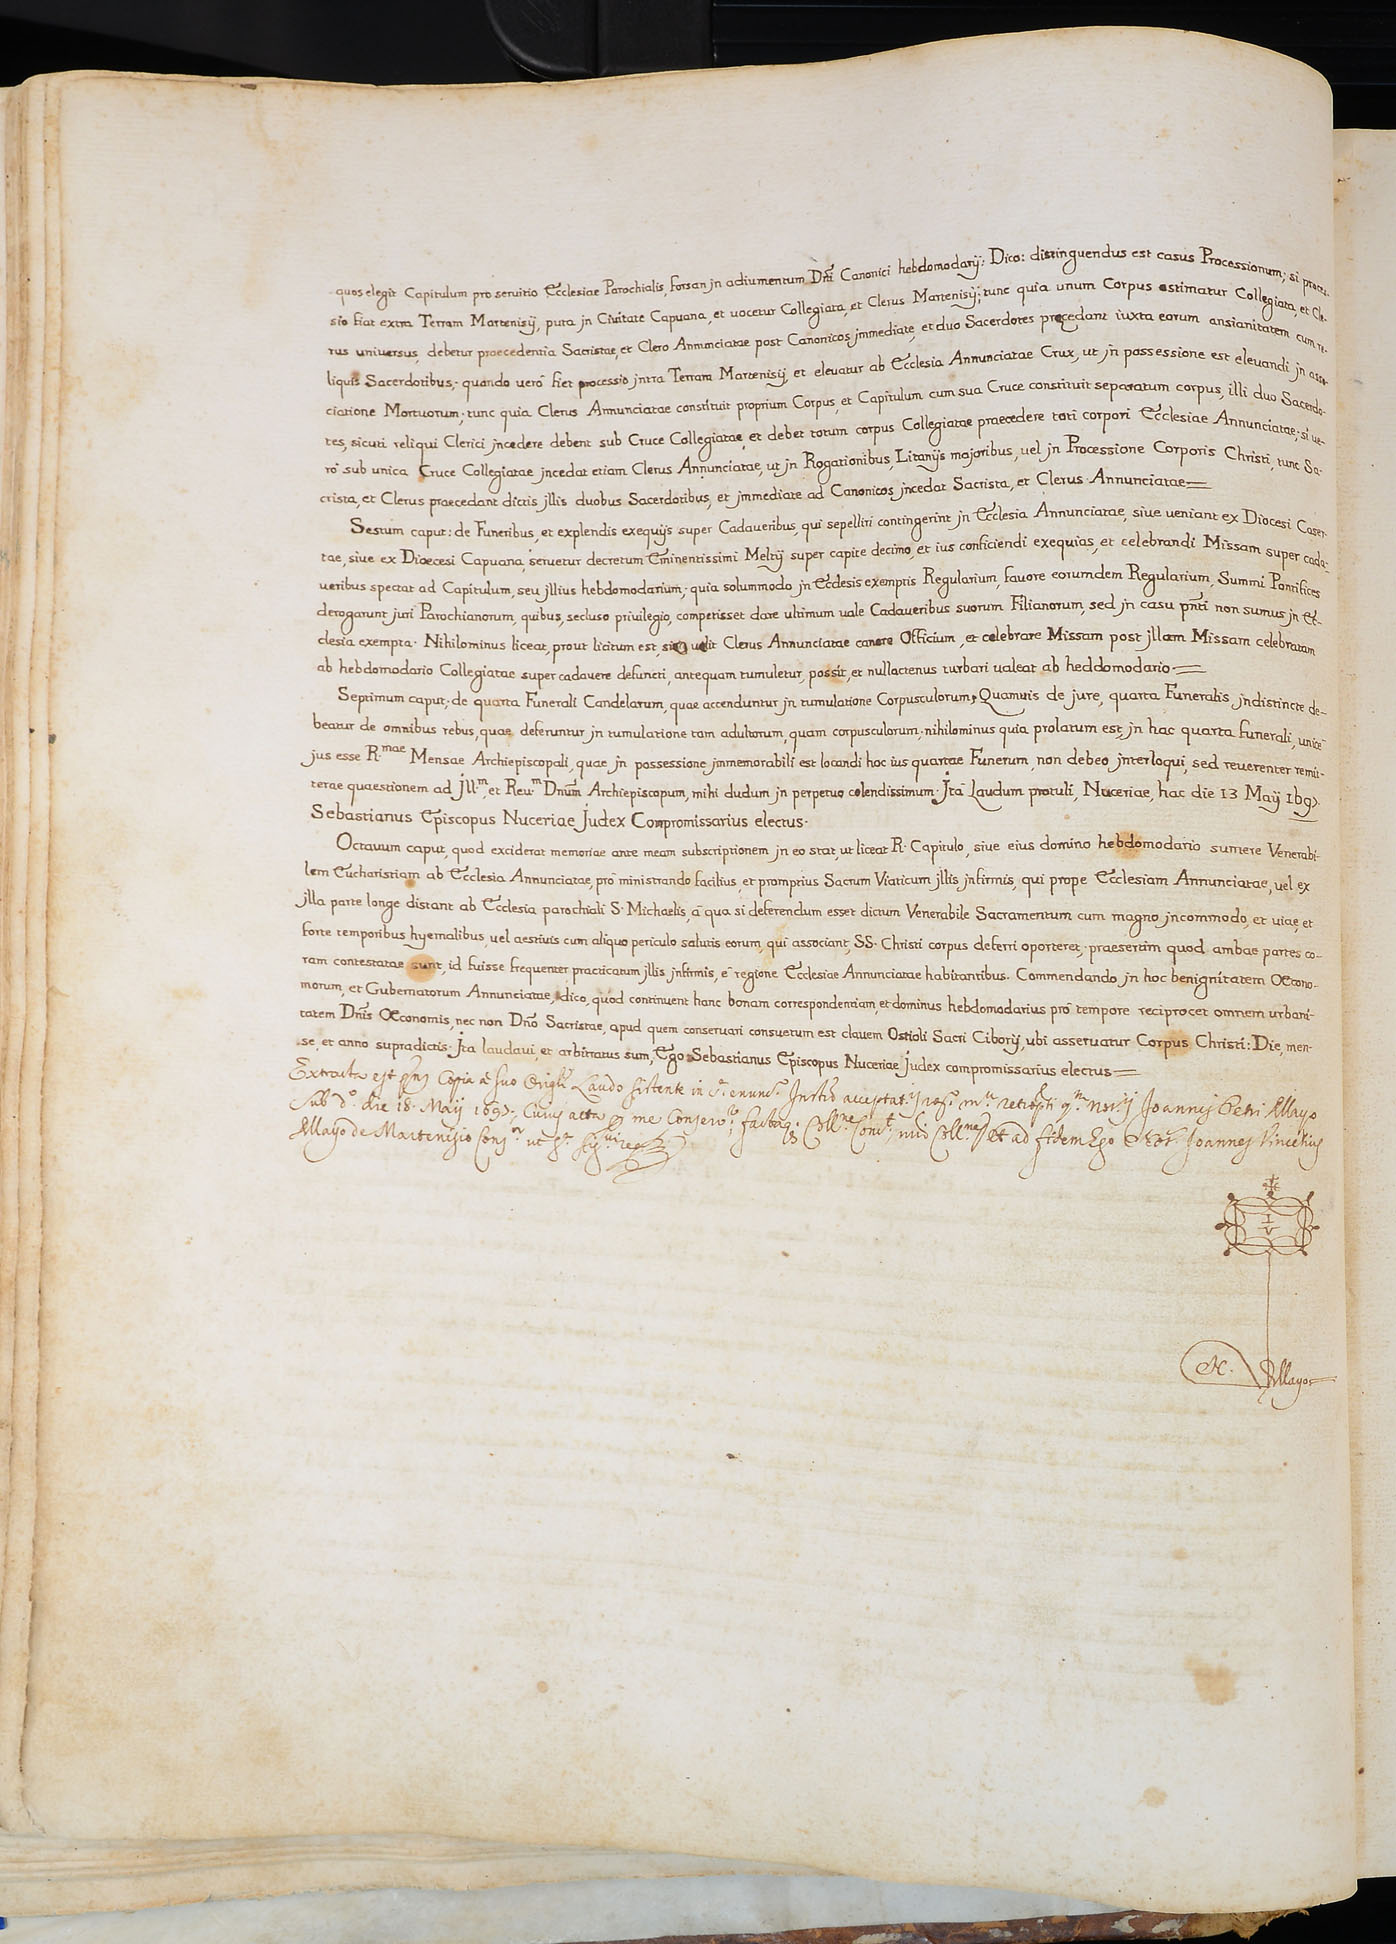 quos elegit Capitulum pro seruitio Ecclesiae Parochialis, forsan jn adiumentum Dn̄i Canonici hebdomodarij: Dico: distinguendus est casus Processionum; si proces-
sio fiat extra Terram Martenisij, puta jn Ciuitate Capuana, et uocetur Collegiata, et Clerus Martenisij; tunc quia unum Corpus estimatur Collegiata, et Cle-
rus uniuersus, debetur praecedentia Sacristae, et Clero Annunciatae post Canonicos jmmediate, et duo Sacerdotes procedant iuxta eorum ansianitatem cum re-
liquis Sacerdotibus; quando uerò fiet processio jntra Terram Martenisij, et eleuatur ab Ecclesia Annunciatae Crux, ut jn possessione est eleuandi jn asso-
ciatione Mortuorum; tunc quia Clerus Annunciatae constituit proprium Corpus, et Capitulum cum sua Cruce constituit separatum corpus, illi duo Sacerdo-
tes, sicuti reliqui Clerici jncedere debent sub Cruce Collegiatae, et debet totum corpus Collegiatae praecedere toti corpori Ecclesiae Annunciatae; si ue-
rò sub unica Cruce Collegiatae jncedat etiam Clerus Annunciatae, ut jn Rogationibus, Litanijs majoribus, uel jn Processione Corporis Christi, tunc Sa-
crista, et Clerus praecedant dictis jllis duobus Sacerdotibus, et jmmediate ad Canonicos jncedat Sacrista, et Clerus Annunciatae=
Sestum caput: de Funeribus, et explendis exequijs super Cadaueribus, qui sepelliri contingerint jn Ecclesia Annunciatae, siue ueniant ex Diocesi Caser-
tae, siue ex Dioecesi Capuana, seruetur decretum Eminentissimi Meltij super capite decimo, et ius conficiendi exequias, et celebrandi Missam super cada-
ueribus spectat ad Capitulum, seu jllius hebdomodarium; quia solummodo jn Ecclesis exemptis Regularium, fauore eorumdem Regularium, Summi Pontifices
derogarunt juri Parochianorum, quibus, secluso priuilegio, competisset dare ultimum uale Cadaueribus suorum Filianorum, sed jn casu pn̄ti non sumus jn Ec-
clesia exempta. Nihilominus liceat, prout licitum est, si uelit Clerus Annunciatae canere Officium, et celebrare Missam post jllam Missam celebratam
ab hebdomodario Collegiatae super cadauere defuncti, antequam tumuletur, possit, et nullactenus turbari ualeat ab heddomodario=
Septimum caput: de quarta Funerali Candelarum, quae accenduntur jn tumulatione Corpusculorum, Quamuis de jure, quarta Funeralis jndistincte de-
beatur de omnibus rebus, quae deferuntur jn tumulatione tam adultorum, quam corpusculorum; nihilominus quia prolatum est, jn hac quarta funerali, unicè
jus esse R.mae Mensae Archiepiscopali, quae jn possessione jmmemorabili est locandi hoc ius quartae Funerum, non debeo jnterloqui, sed reuerenter remit-
terae quaestionem ad Jll.m, et Reu.m Dn̄um Archiepiscopum, mihi dudum jn perpetuo colendissimum. Jta Laudum protuli, Nuceriae, hac die 13 Maij 169
Sebastianus Episcopus Nuceriae Judex Compromissarius electus.
Octauum caput, quod exciderat memoriae ante meam subscriptionem jn eo stat, ut liceat R. Capitulo, siue eius domino hebdomodario sumere Venerabi-
lem Eucharistiam ab Ecclesia Annunciatae, prò ministrando facilius, et promptius Sacrum Viaticum jllis jnfirmis, qui prope Ecclesiam Annunciatae, uel ex
jlla parte longe distant ab Ecclesia parochiali S. Michaelis, à qua si deferendum esset dictum Venerabile Sacramentum cum magno jncommodo, et uiae, et
forte temporibus hyemalibus, uel aestiuis cum aliquo periculo salutis eorum, qui associant, SS. Christi corpus deferri oporteret; praesertim quod ambae partes co-
ram contestatae sunt, id fuisse frequenter practicatum jllis jnfirmis, è regione Ecclesiae Annunciatae habitantibus. Commendando jn hoc benignitatem Oecono-
morum, et Gubernatorum Annunciatae, dico, quod continuent hanc bonam correspondentiam, et dominus hebdomodarius prò tempore reciprocet omnem urbani-
tatem Dn̄is Oeconomis, nec non Dn̄o Sacristae, apud quem conseruari consuetum est clauem Ostioli Sacri Ciborij, ubi asseruatur Corpus Christi: Die, men-
se, et anno supradictis. Jta laudaui, et arbitratus sum, Ego Sebastianus Episcopus Nuceriae Judex compromissarius electus=
Extracta est Copia à suo Laudo sistente in
sub d.o die 18 Maij 169 Cuius acta me Joannis Petri Allayo
Allayo de Martenisio ut et ad fidem Ego Joannes Vincetius
I
V
Allayo